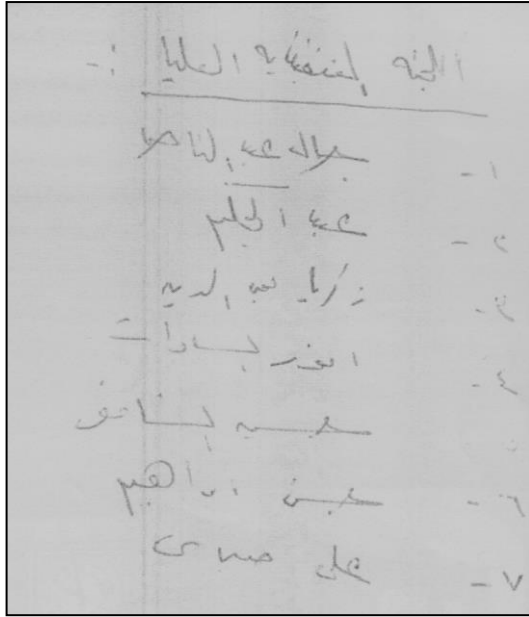 اللجنة التنفيذية العليا :-
١- جمال عبد الناصر
٢- عبد الحكيم
٣- زكريا محي الدين
٤- انور السادات
٥ حسين الشافعي
٦- حسن ابراهيم
٧- علي صبري